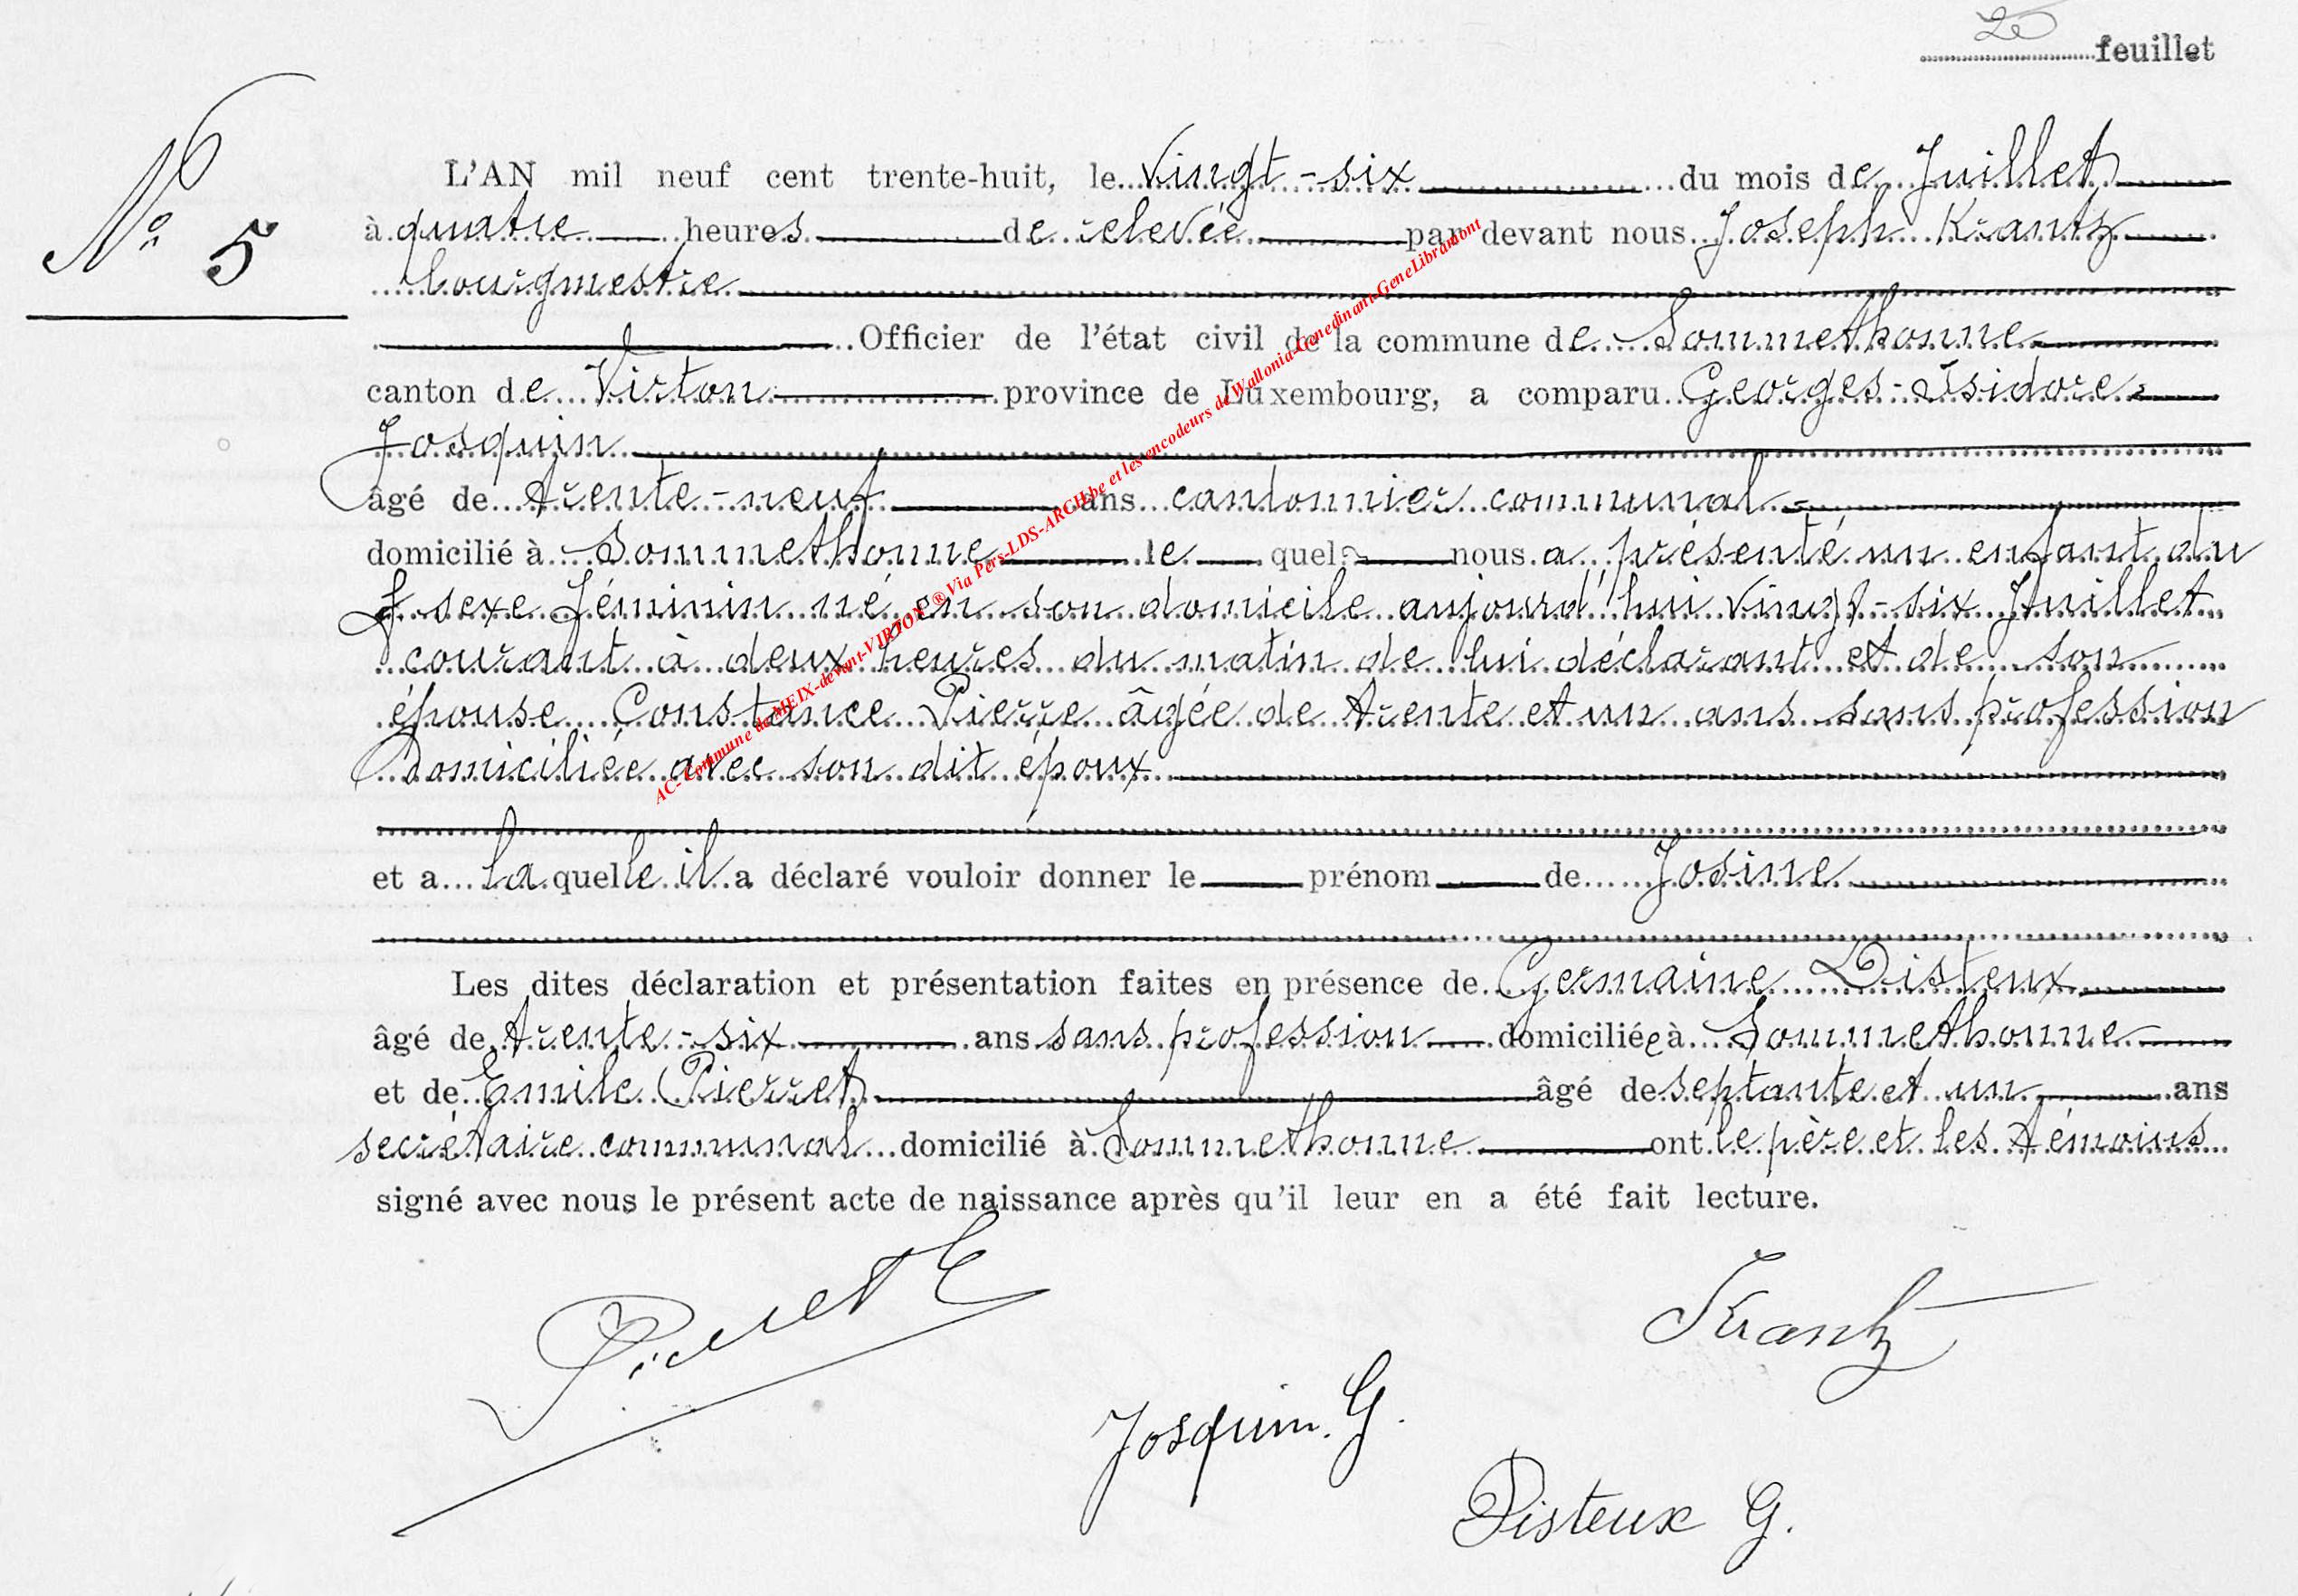 2e feuillet
N° 5
L'AN mil neuf cent trente-huit, le Vingt-six du mois de Juillet
à quatre heures de relevée par devant nous Joseph Krantz
bourgmestre
Officier de l'état civil de la commune de Sommethonne
canton de Virton province de Luxembourg, a comparu Georges-Isidore
Josquin
âgé de trente-neuf ans cantonnier communal
domicilié à Sommethonne le quel nous a présenté un enfant du
sexe féminin né en son domicile aujourd'hui vingt-six Juillet
courant à deux heures du matin de lui déclarant et de son
épouse Constance Pierre âgée de trente et un ans sans profession
domiciliée avec son dit époux
et a laquelle il a déclaré vouloir donner le prénom de Josine
Les dites déclaration et présentation faites en présence de Germaine Disteux
âgé de trente-six ans sans profession domiciliée à Sommethonne
et de Emile Pierret âgé de septante et un ans
secrétaire communal domicilié à Sommethonne ont le père et les témoins
signé avec nous le présent acte de naissance après qu'il leur en a été fait lecture.
Pierret E
Krantz
Josquin. G.
Disteux G.
AC-Commune de MEIX-devant-VIRTON ® Via Pers-LDS-ARCH.be et les encodeurs de Wallonia-Genedinant-GeneLibramont